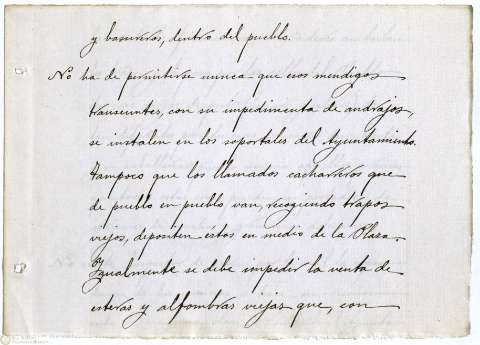 y basureros, dentro del pueblo.
No ha de permitirse nunca que esos mendigos
transeuntes, con su impedimenta de andrajos,
se instalen en los soportales del Ayuntamiento.
Tampoco que los llamados cacharreros que
de pueblo en pueblo van, recogiendo trapos
viejos, depositen éstos en medio de la Plaza.
Igualmente se debe impedir la venta de
esteras y alfombras viejas que, con